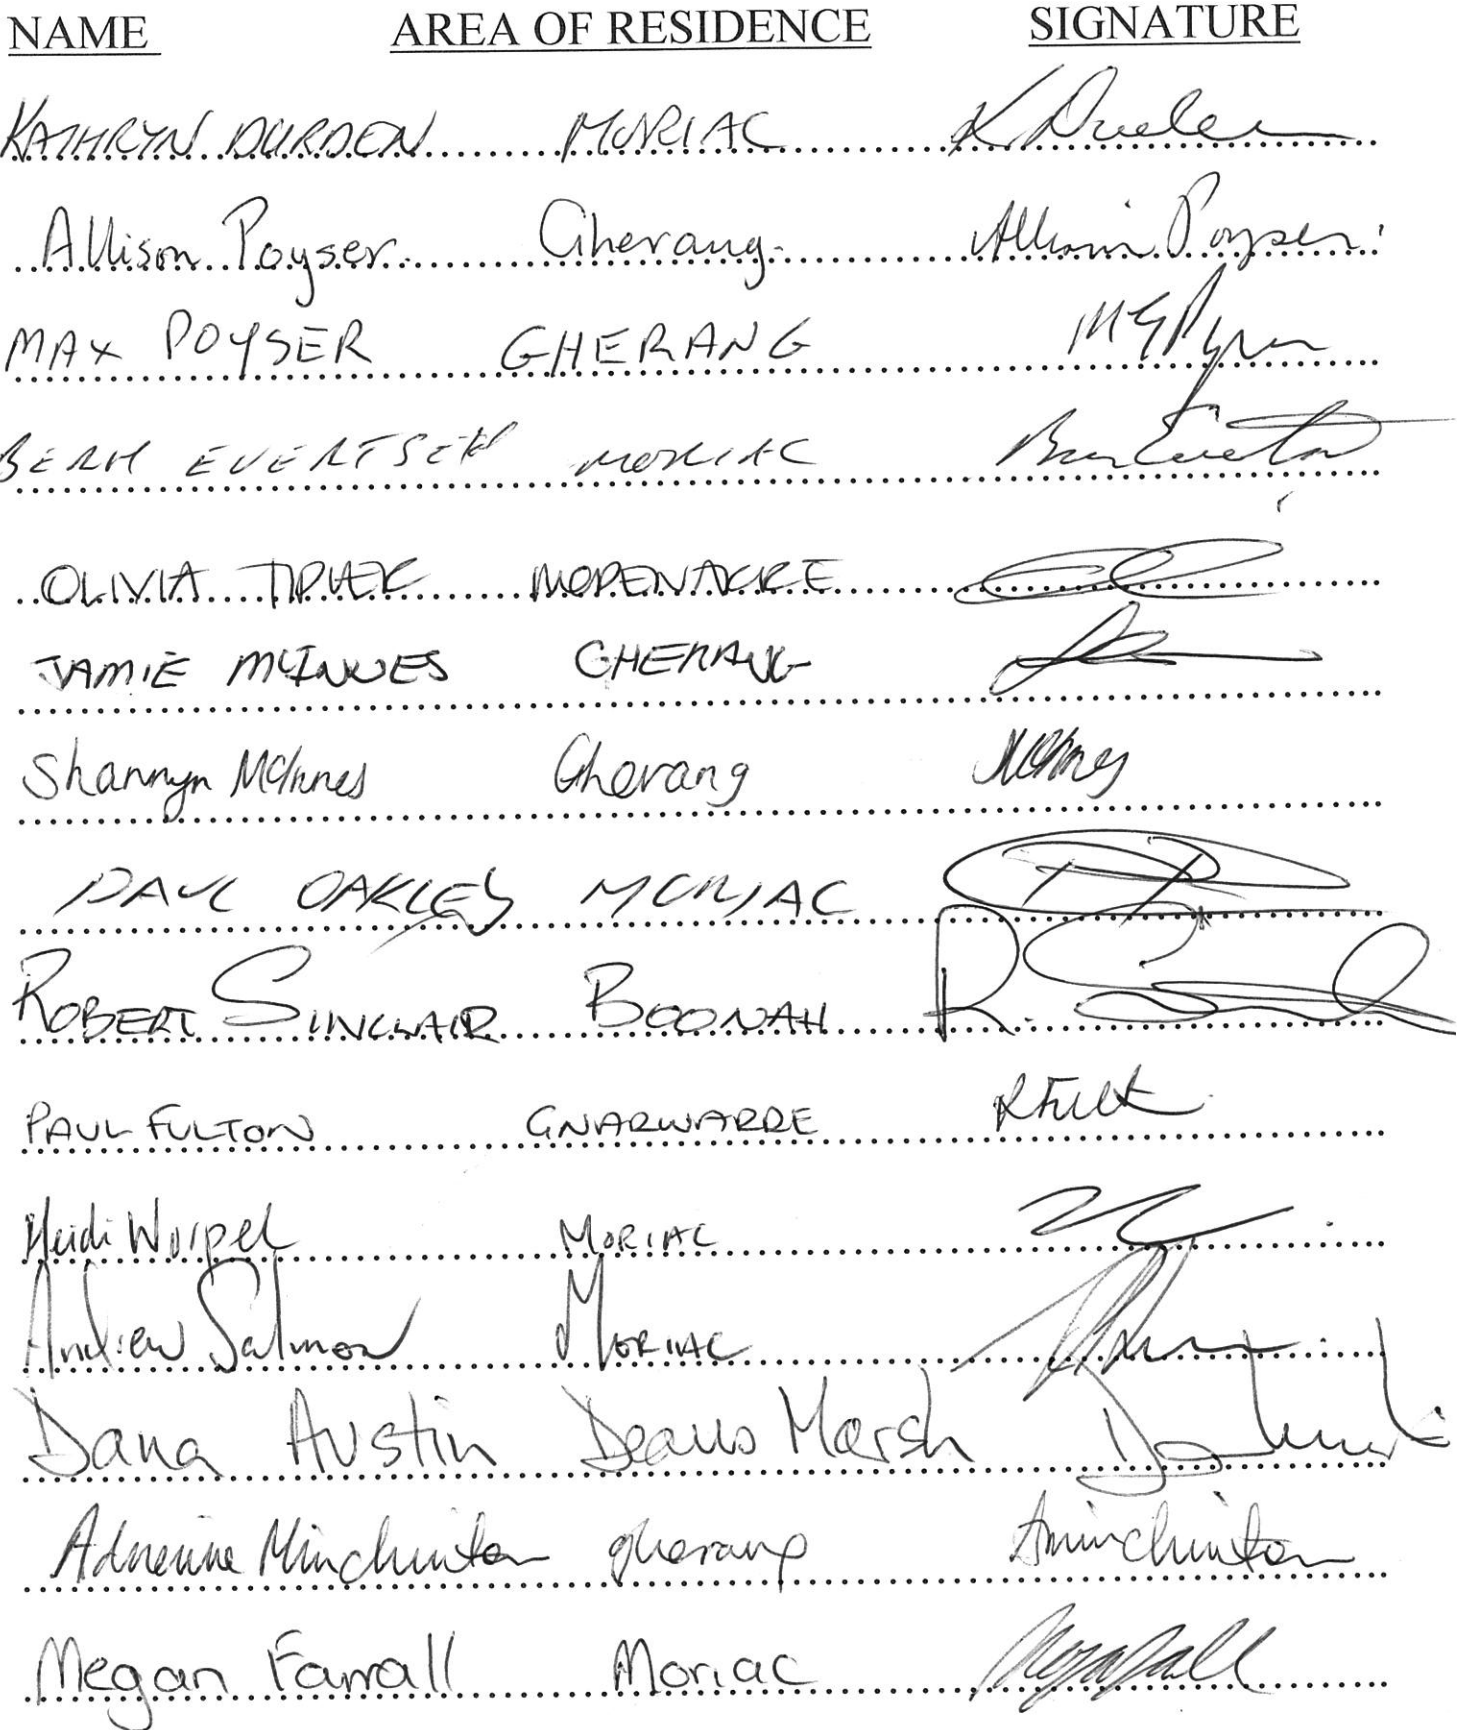 NAME AREA OF RESIDENCE SIGNATURE
KATHRYN DURDEN MORIAC K Durden
Allison Poyser Gherang. Allison Poyser
MAX POYSER GHERANG
EVERTSEN MORIAC
OLIVIA MODEWARRE
JAMIE McINNES GHERANG
Shannyn McInnes Gherang McInnes
PAUL OAKLEY MORIAC
ROBERT SINCLAIR BOONAH R.
PAUL FULTON GNARWARRE
Heidi Worpel MORIAC
Andrew Salmon MORIAC
Dana Austin Deans Marsh
Adrienne Minchinton gherang Aminchinton
Megan Farrall Moriac